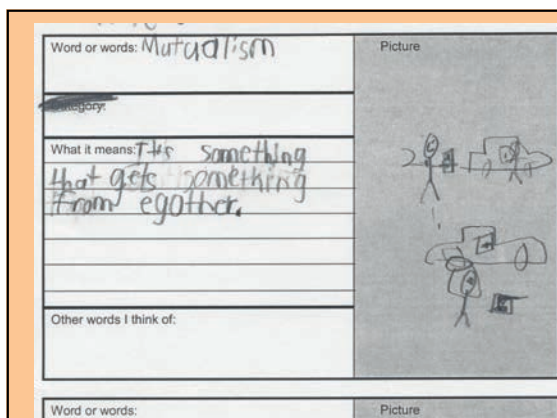 Word or words: Mutualism
Picture
Category:
What it means: It's something
that gets something
from egother.
Other words I think of:
Word or words:
Picture